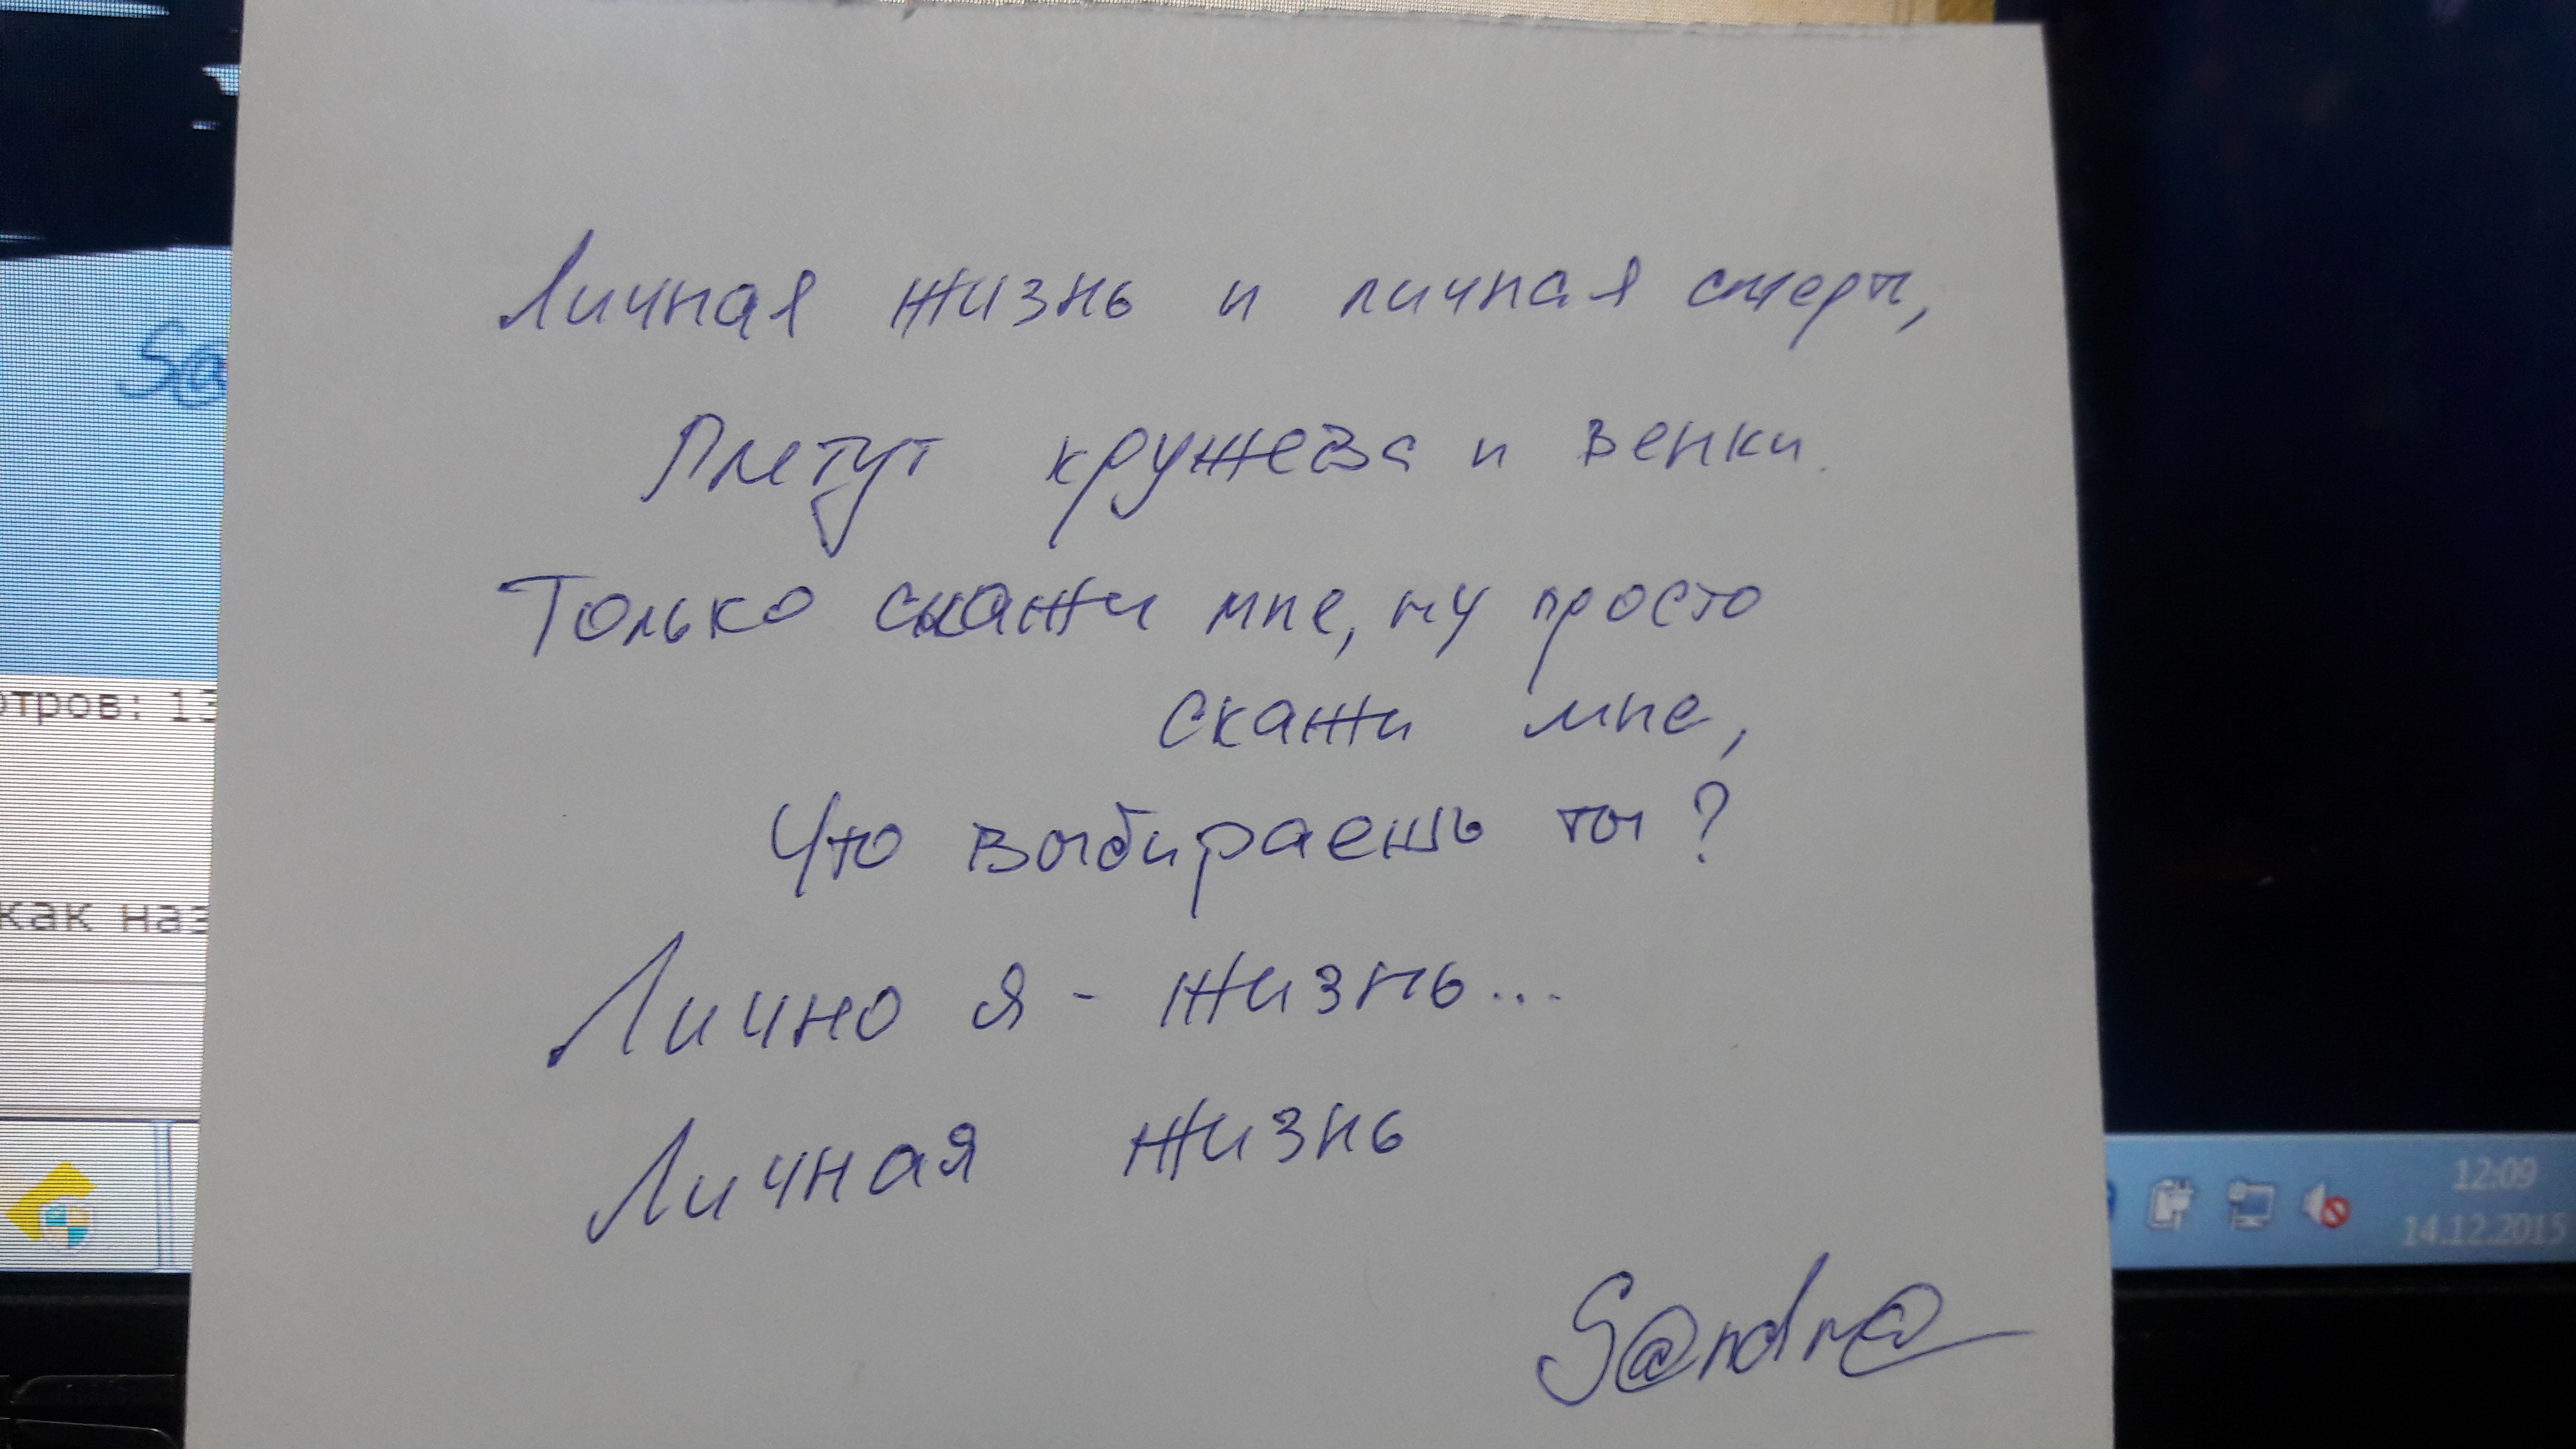 Личная жизнь и личная смерть,
Плетут кружева и венки.
Только скажи мне, ну просто
скажи мне,
Что выбираешь ты?
Лично я - жизнь...
Личная жизнь
S@ndr@
S@
отров: 13
как наз
12:09
14.12.2015